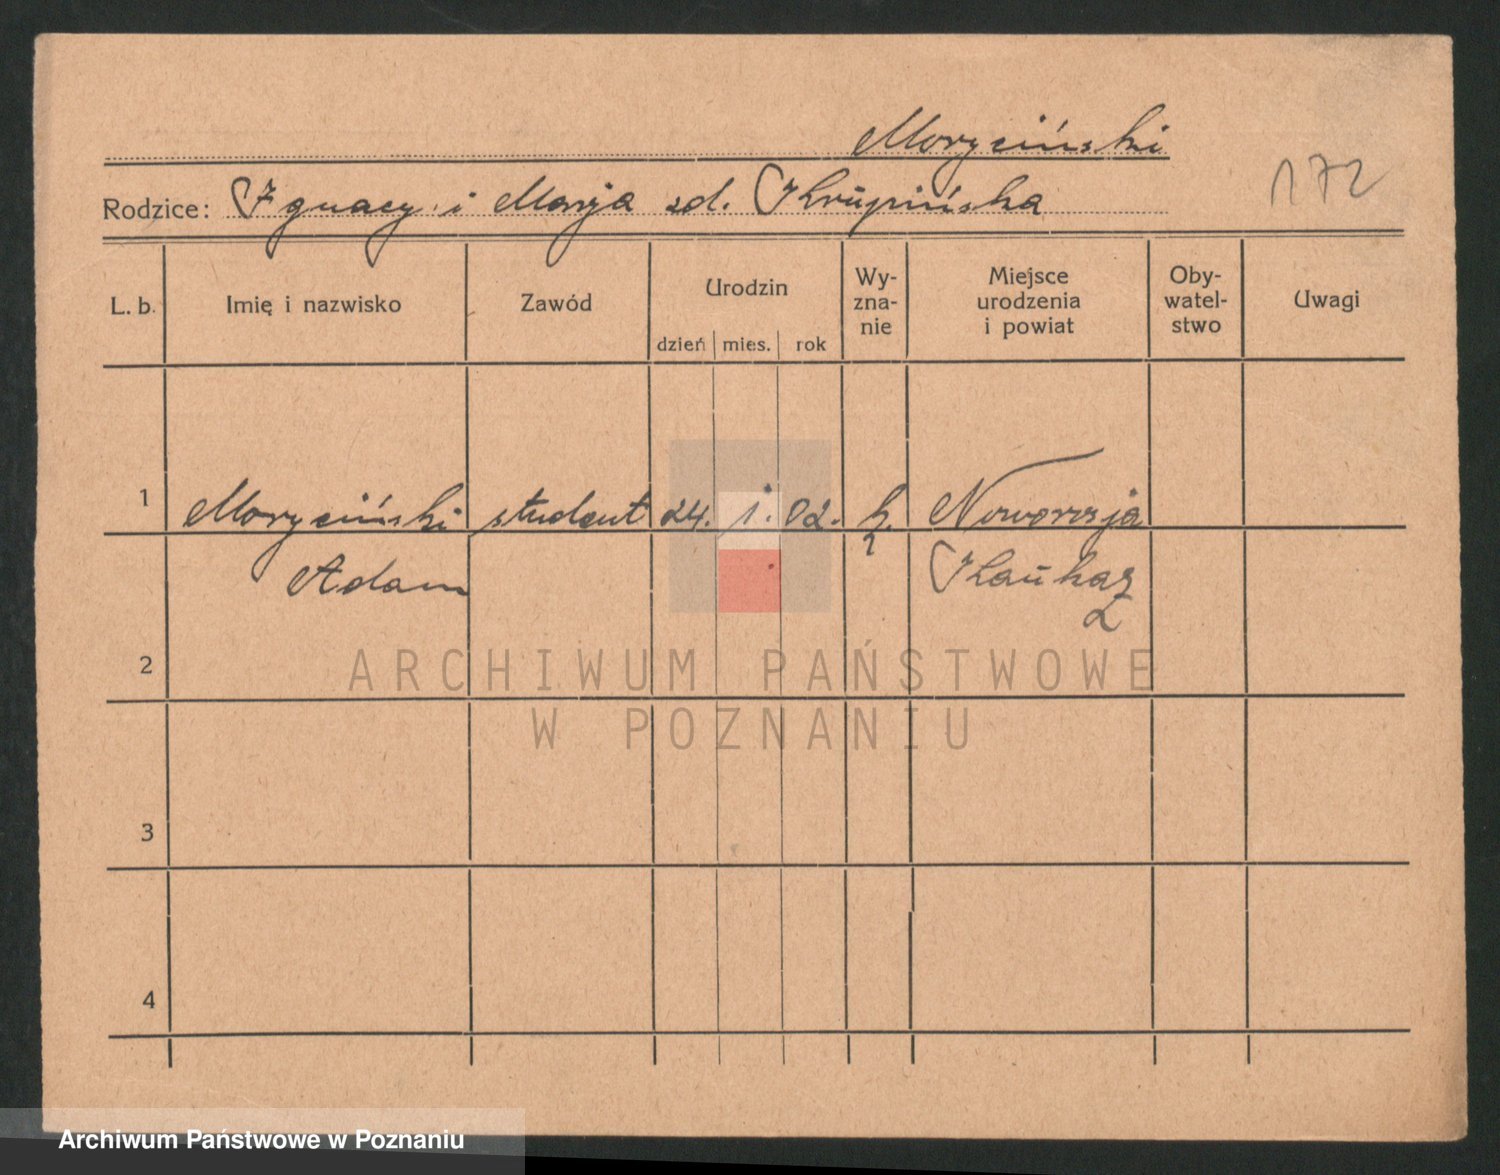 Morzyciński
172
Rodzice: Ignacy i Marja zd. Krupińska
L. b. Imię i nazwisko Zawód Urodzin Wy-zna-nie Miejsce urodzenia i powiat Oby-watel-stwo Uwagi
dzień mies. rok
1 Morzyciński student 24. 1. 02. k. Noworosja
Adam Kaukaz
2
3
4
ARCHIWUM PAŃSTWOWE
W POZNANIU
Archiwum Państwowe w Poznaniu